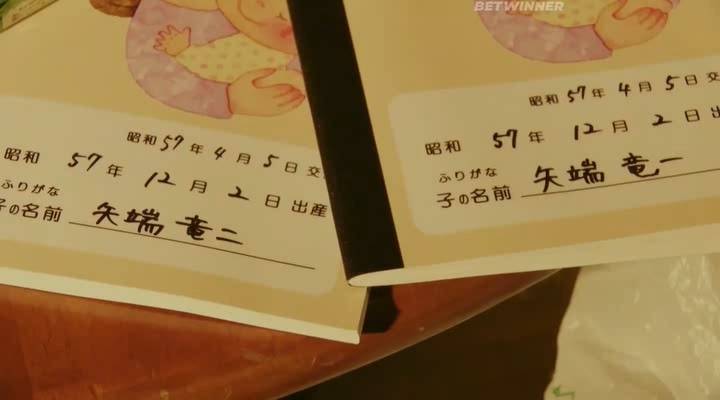 BETWINNER
昭和57年4月5日交
昭和 57年 12月 2日 出産
ふりがな
子の名前 矢端 竜二
昭和57年4月5日交
昭和 57年 12月 2日 出産
ふりがな
子の名前 矢端 竜一